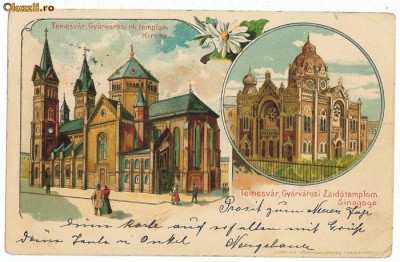 Okazii.ro
Temesvár, Gyárvárosi rk. templom.
Kirche
Temesvár, Gyárvárosi Zsidótemplom.
Sinagoge
Prosit zum Neuen Jahr
Deine Karte auf
mit Grüße
Deine Tante u Onkel Neugebauer